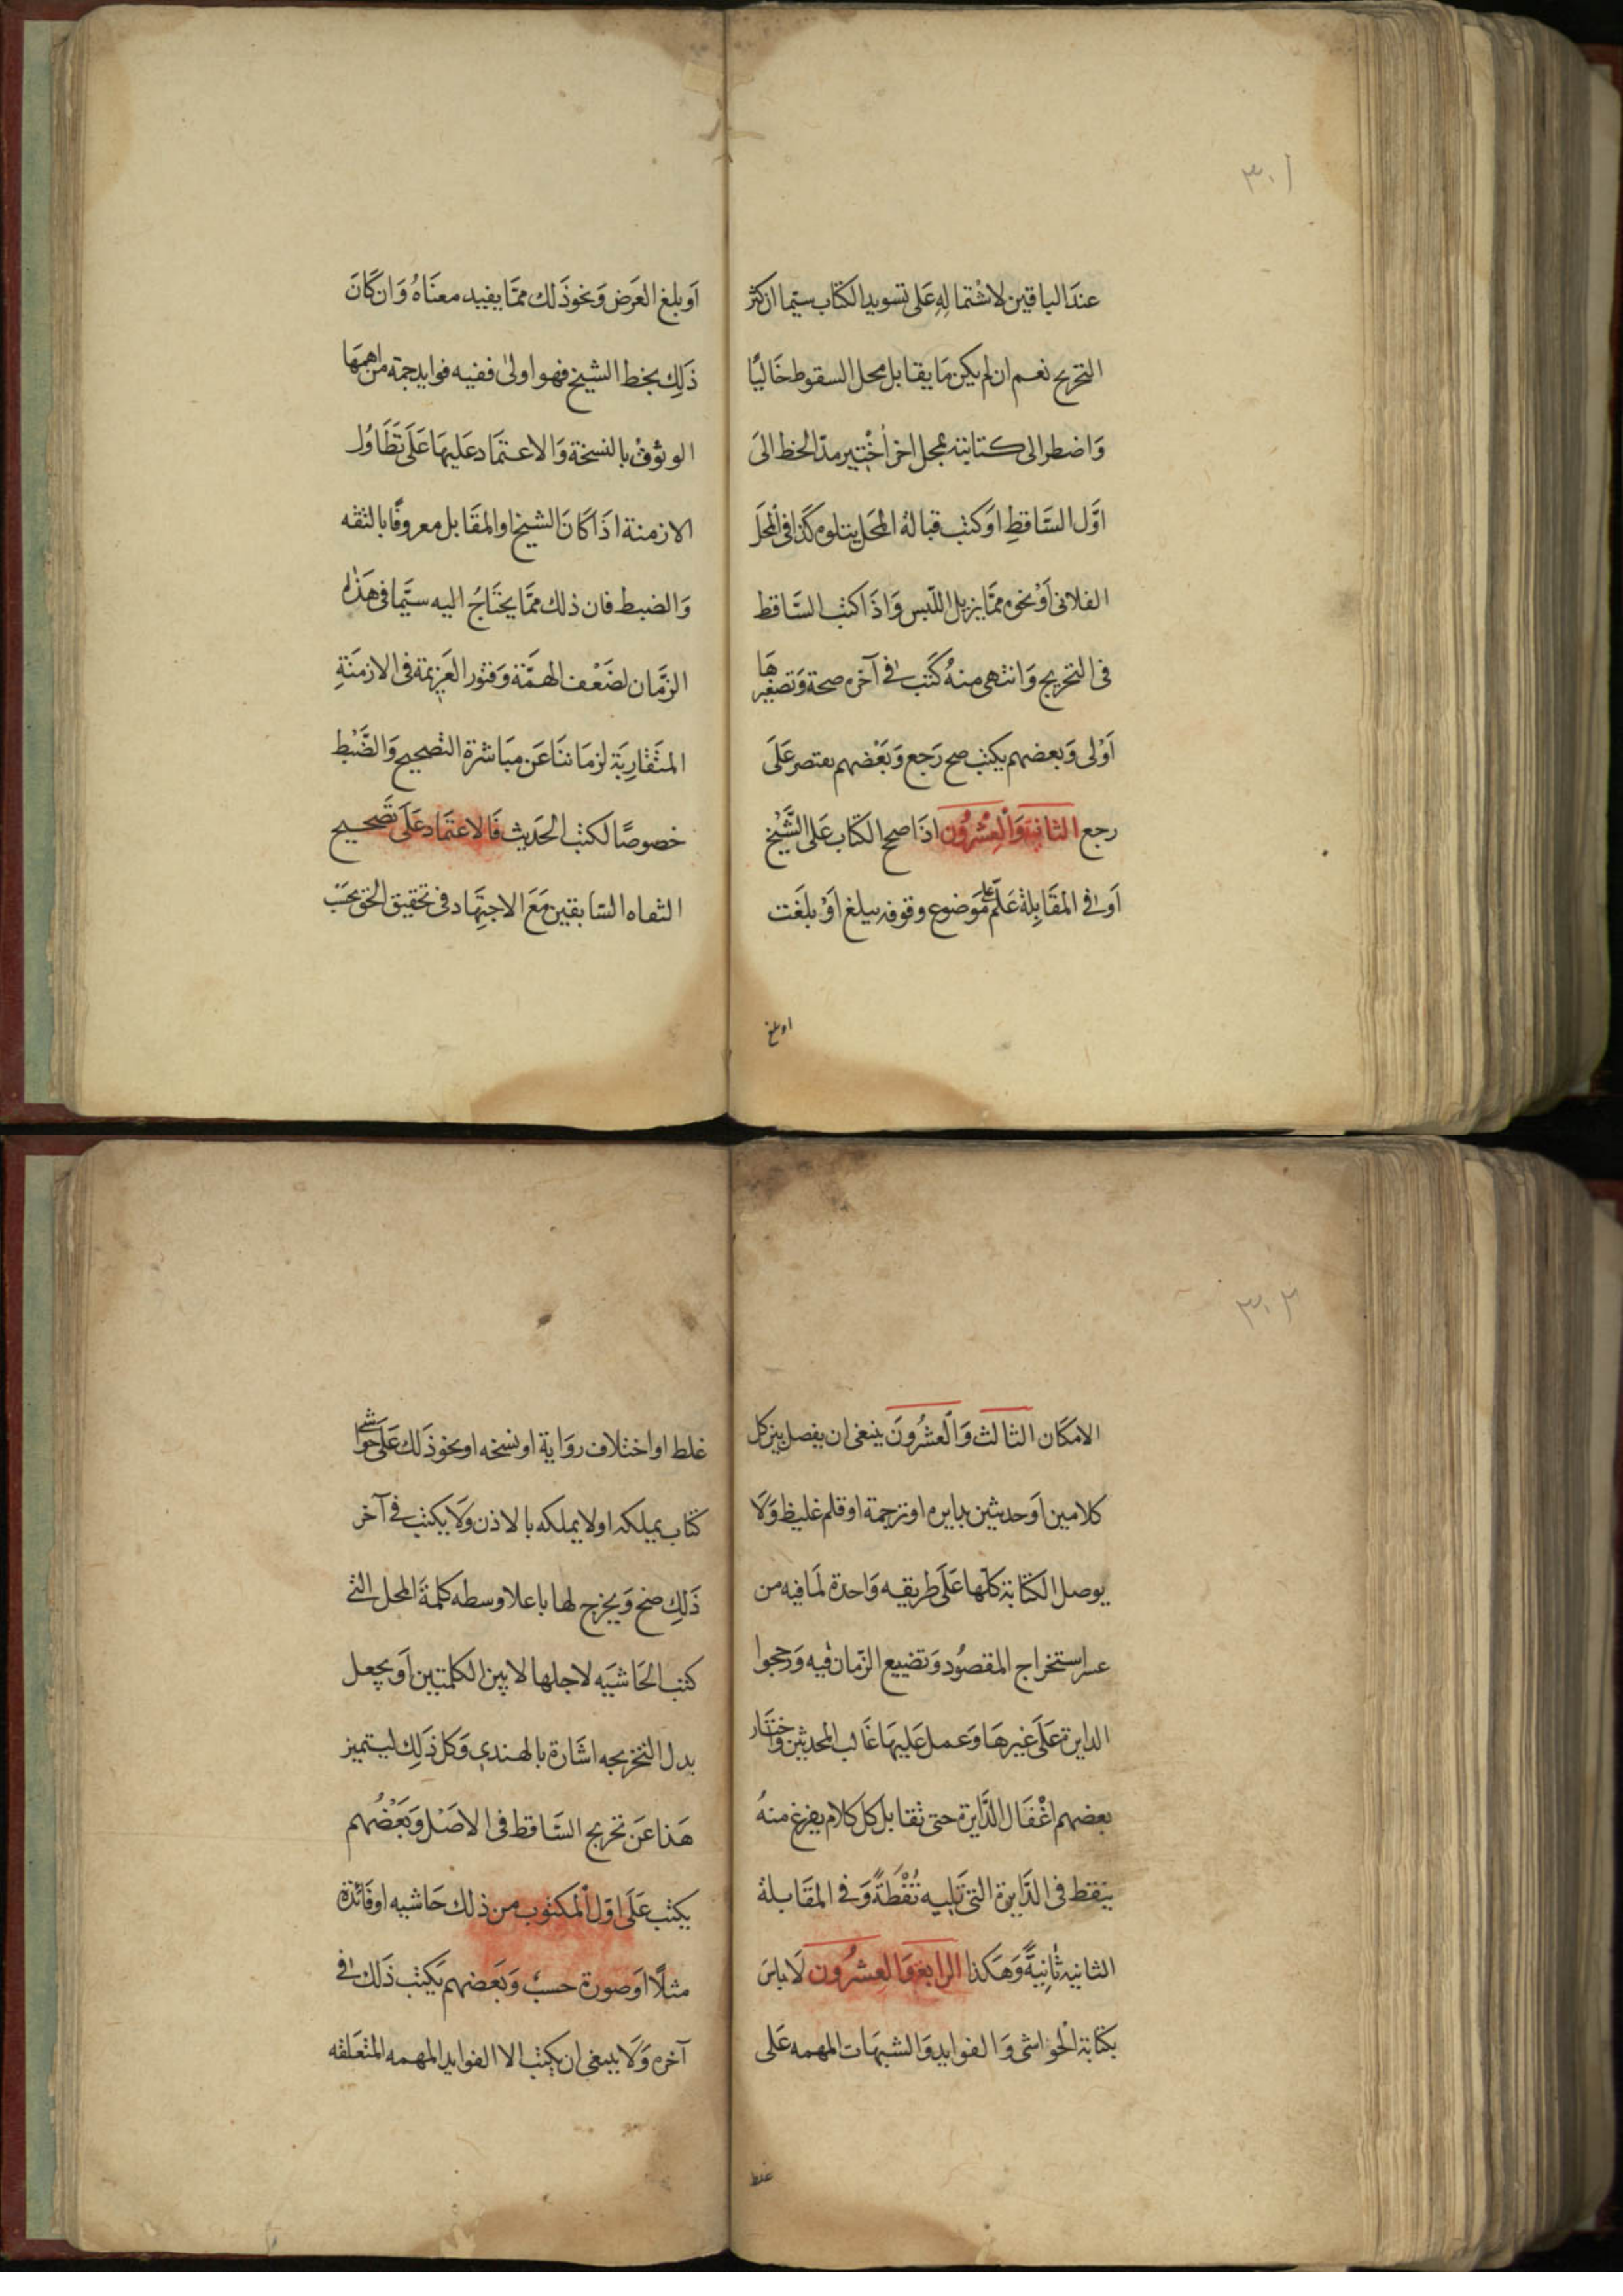 ٣٠١
عندَ الباقين لاشتماله عَلى تسويد الكتاب سيّما ان كثر
التخريج نعم ان لم يكن مَا يقابل محل السقوط خَاليًا
وَاضطر الى كتابته بمحل اخر أُختير مدّ الخط الىَ
اوَّل السَّاقطِ اوَ كتب قبالهُ المحَل يتلوه كَذا فى المحَل
الفلانى أوْ نحوه ممَّا يزيل اللّبس وَاذَا كتب السَّاقط
فى التخريج وَانتهى منهُ كَتَب فى آخره صحة وَتصغيرهَا
اَوْلى وَبعضهم يكتب صح رَجع وَبَعْضهم يقتصر عَلَى
رجع الثانية وَالْعِشْرُون اذَا صحح الكتَاب عَلى الشَّيْخ
اَو فى المقَابِلة عَلَّم على مَوَضوع وقوفه ببلغ اَوْ بلغَت
او بلغ
اَو بلغ العَرَض وَنحوذَلك ممّا يفيد معنَاهُ وَان كَانَ
ذَلِك بخط الشيخ فهو اولىٰ ففيه فوايد جمة من اهمهَا
الوثوقْ بالنسخة وَالاعتمَاد عَليهَا عَلَى تَطَاوُل
الازمنة اذَا كانَ الشيخ او المقَابل معروفًا بالثقه
وَالضبط فان ذلك ممَّا يحتَاجُ اليه سيَّما فى هَذه
الزَّمان لضَعْف الهمَّة وَفتور العَزيمة فى الازمَنَةِ
المتَقَاربَة لزمَاننَا عَن مبَاشرة التصحيح وَالضَّبْط
خصوصًا لكتب الحَديث فَالاعتمَاد عَلَى تَصحيح
الثقاه السّابقين مَعَ الاجتهَاد فى تحقيق الحق بحَسَب
٣٠٢
الامكَان الثالث وَالْعشْرُونَ ينبغى ان يفصل بين كل
كلامين اَو حديثين بدايره او ترجمة او قلم غليظ وَلَا
يوصل الكتَابة كلّها عَلَى طريقه وَاحدة لمَا فيه من
عسر استخراج المقصُود وَتضييع الزّمان فيه وَرجحوا
الدايرة عَلَى غيرهَا وَعمل عَليهَا غَالب المحدثين وَاختَار
بعضهم اغْفَال الدَّايرة حتى تقابل كل كلام يفرغ منهُ
ينقط فى الدَّايرة التى تَليه نُقْطَةً وَفى المقَابلة
الثانيه ثَانِيَةً وَهَكذا الرابع وَالعِشْرُون لَا باسَ
بكتَابة الْحوَاشى وَالفوايد وَالشبهَات المهمه عَلى
غلط
غلط او اختلاف روَاية او نسخه او نحوذَلك عَلَى حوَاشى
كتاب يملكه او لا يملكه بالاذن وَلَا يكتب فى آخر
ذَلكِ صح وَيخرج لها باعلا وسطه كلمةَ المحل التى
كتب الحَاشيَه لاجلها لا بين الكلمتين اَو يجعل
بدل التخريجه اشَارة بالهندى وَكل ذَلِك ليتميز
هَذا عَن تخريج السَّاقط فى الاصَل وَبَعْضُهم
يكتب عَلَى اوّل المكتوب من ذلك حَاشيه او فَائدة
مثلًا اَو صورة حسب وَبَعضهم يَكتب ذَلك فى
آخره وَلَا يىبغى ان يكتب الا الفوايد المهمه المتعَلقه